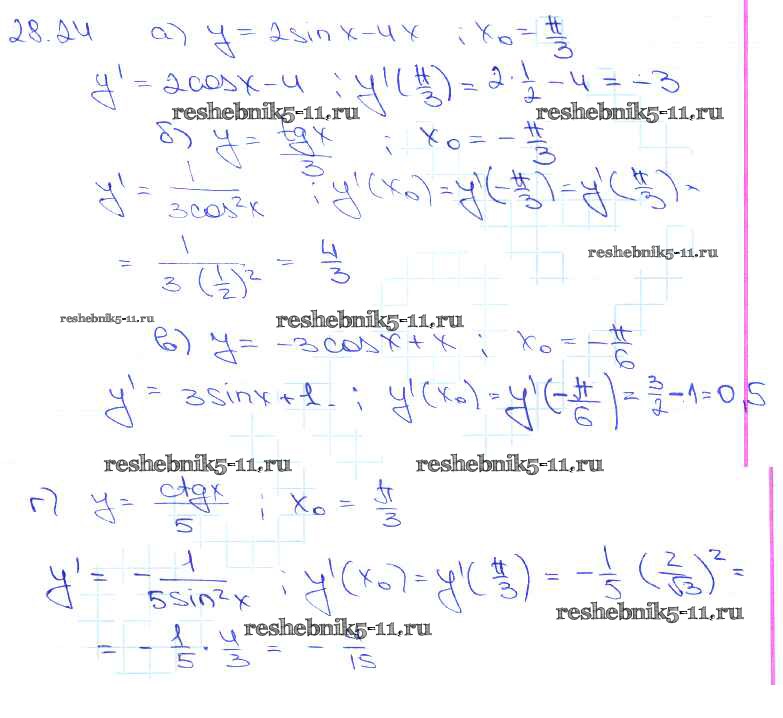 28.24 а) y = 2sinx-4x ; x₀ = π/3
y' = 2cosx-4 ; y'(π/3) = 2·1/2 - 4 = -3
reshebnik5-11.ru reshebnik5-11.ru
б) y = tgx/3 ; x₀ = -π/3
y' = 1/3cos²x ; y'(x₀) = y'(-π/3) = y'(π/3) =
reshebnik5-11.ru
= 1/3(1/2)² = 4/3
reshebnik5-11.ru reshebnik5-11.ru
в) y = -3cosx+x ; x₀ = -π/6
y' = 3sinx+1. ; y'(x₀) = y'(-π/6) = 3/2 - 1 = 0,5
reshebnik5-11.ru reshebnik5-11.ru
г) y = ctgx/5 ; x₀ = π/3
y' = -1/5sin²x ; y'(x₀) = y'(π/3) = -1/5 (2/√3)² =
reshebnik5-11.ru
reshebnik5-11.ru
= -1/5 · 4/3 = - /15